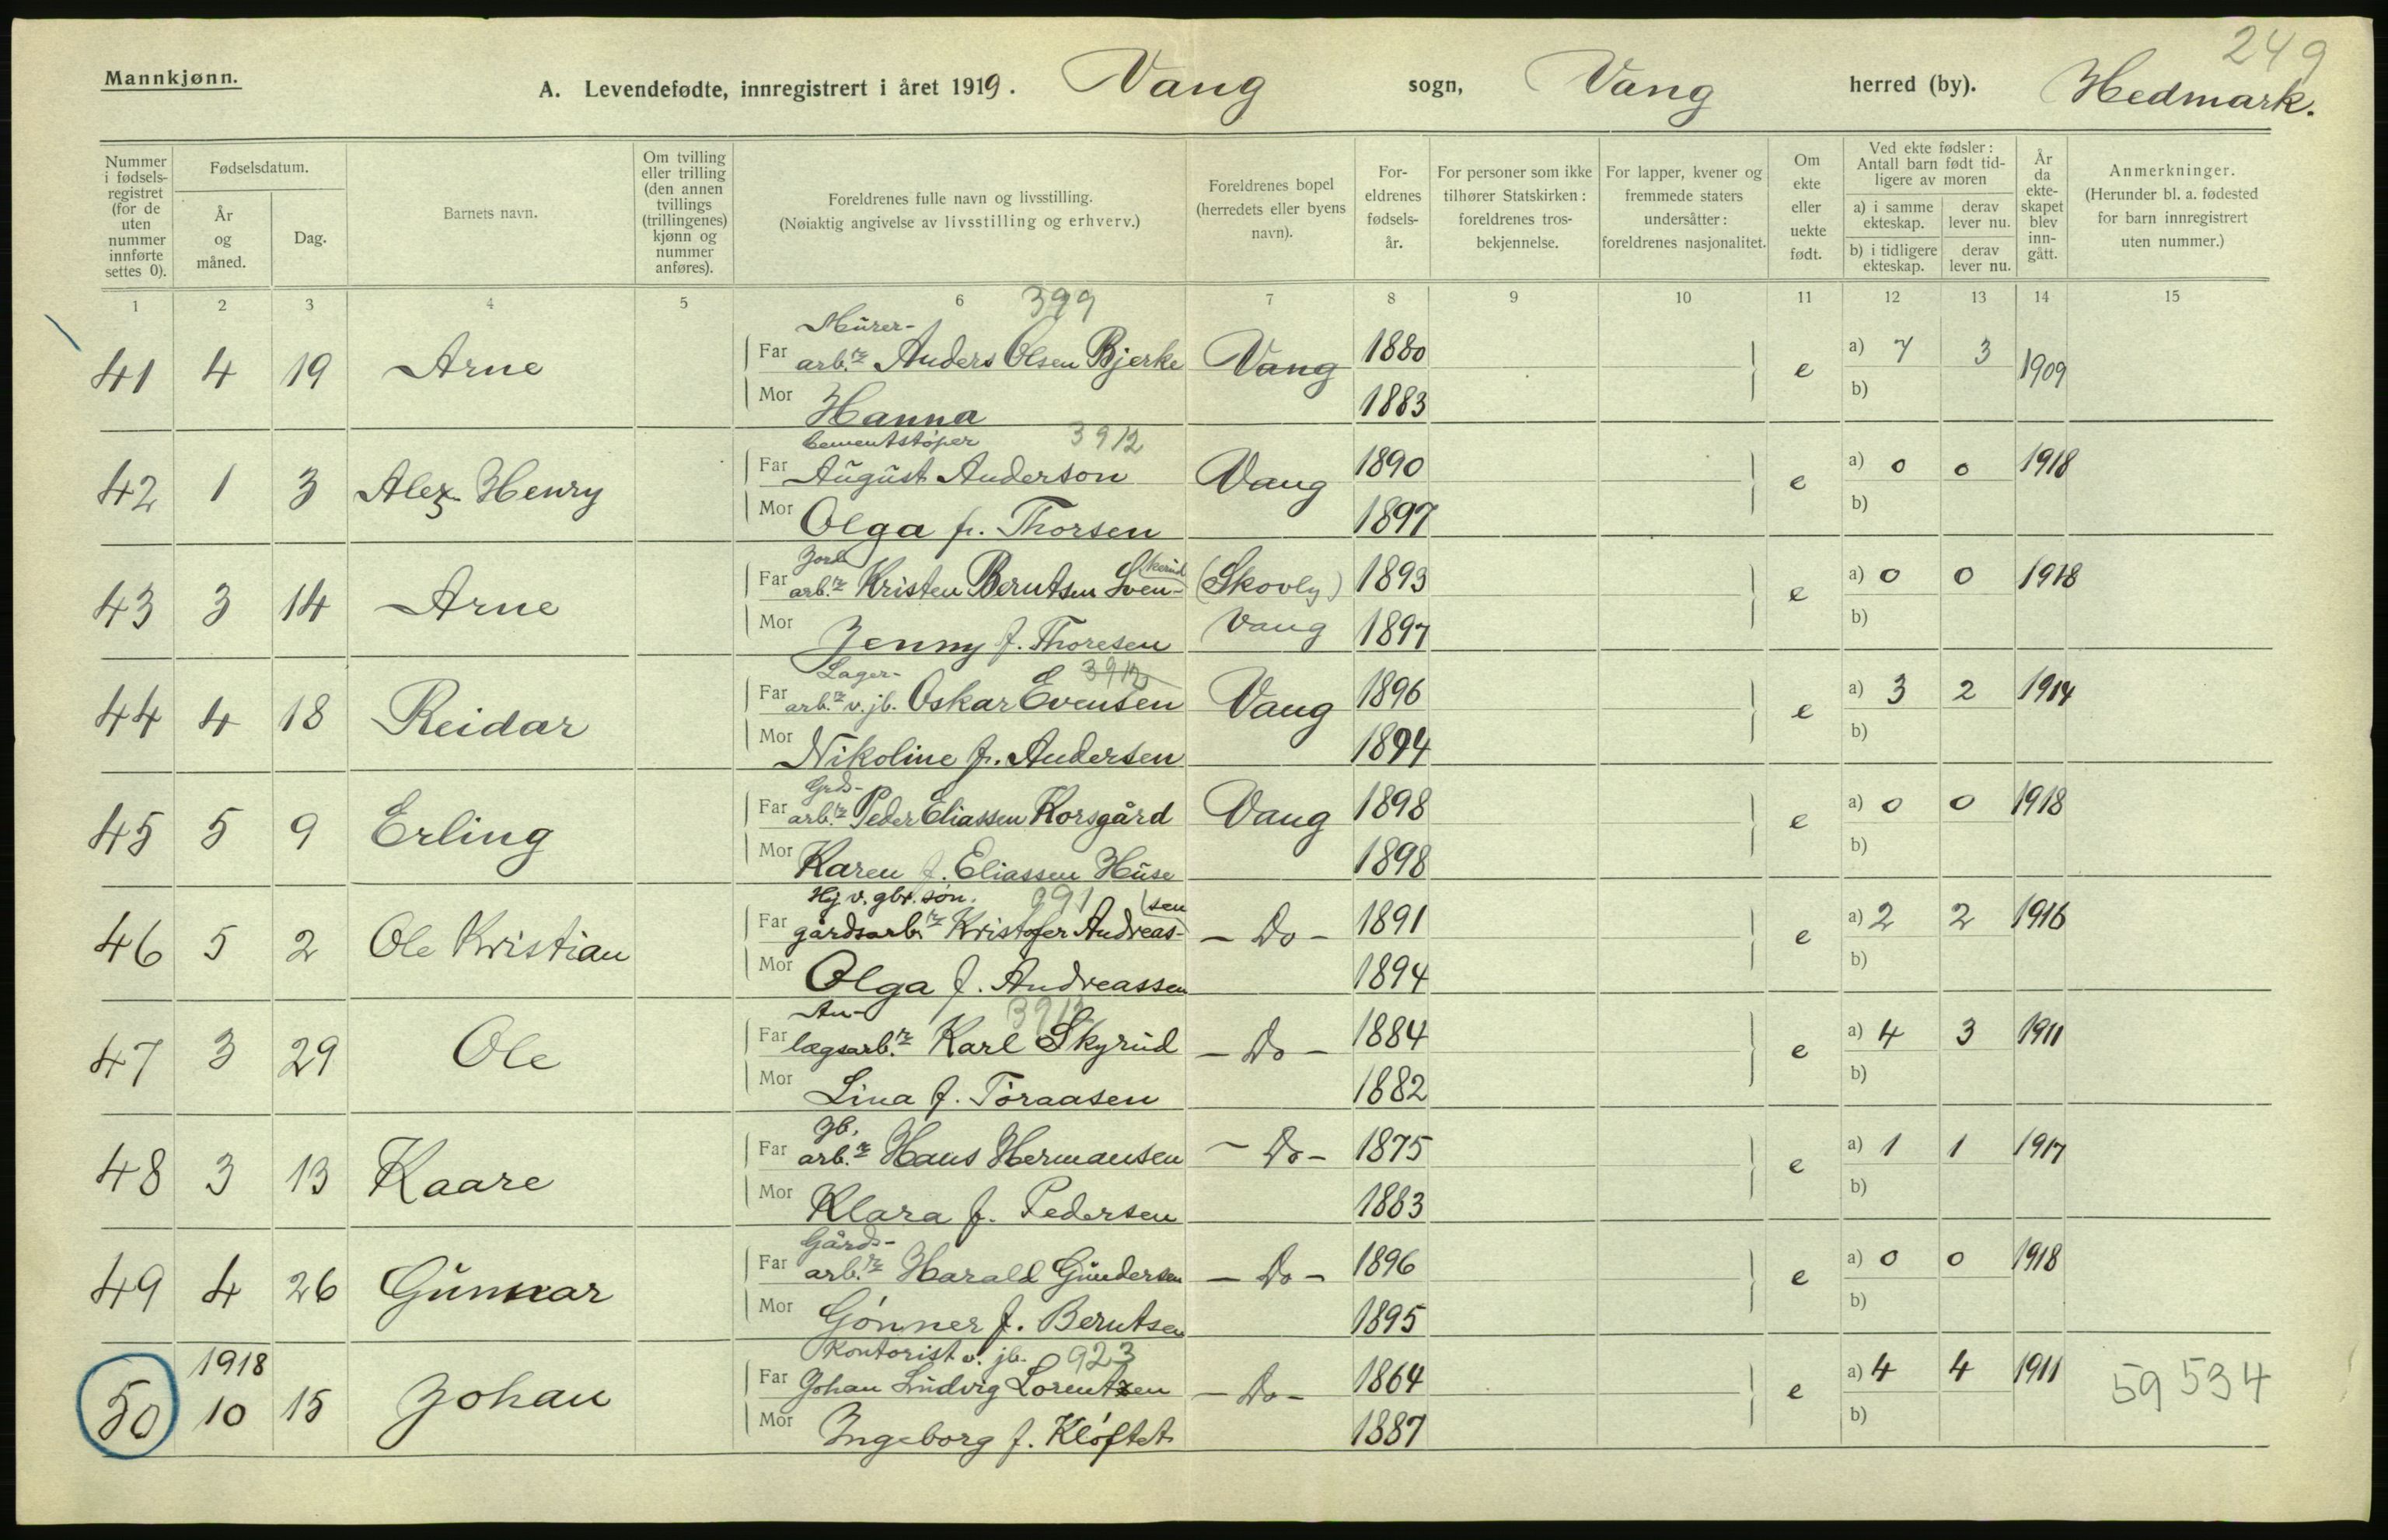 249
Mannkjønn.
A. Levendefødte, innregistrert i året 1919. Vang sogn, Vang herred (by). Hedmark.
Nummer i fødselsregistret (for de uten nummer innførte settes 0).
Fødselsdatum.
År og måned.
Dag.
Barnets navn.
Om tvilling eller trilling (den annen tvillings (trillingenes) kjønn og nummer anføres).
Foreldrenes fulle navn og livsstilling.
(Nøiaktig angivelse av livsstilling og erhverv.)
Foreldrenes bopel (herredets eller byens navn).
Foreldrenes fødselsår.
For personer som ikke tilhører Statskirken: foreldrenes trosbekjennelse.
For lapper, kvener og fremmede staters undersåtter: foreldrenes nasjonalitet.
Om ekte eller uekte født.
Ved ekte fødsler: Antall barn født tidligere av moren
a) i samme ekteskap. derav lever nu.
b) i tidligere ekteskap. derav lever nu.
År da ekteskapet blev inngått.
Anmerkninger.
(Herunder bl. a. fødested for barn innregistrert uten nummer.)
1 2 3 4 5 6 7 8 9 10 11 12 13 14 15
399
Murer-
41 4 19 Arne Far arb.r Anders Olsen Bjerke Vang 1880 e a) 7 3 1909
Mor Hanna 1883 b)
Cementstøper 3912
42 1 3 Alex Henry Far August Anderson Vang 1890 e a) 0 0 1918
Mor Olga f. Thorsen 1897 b)
Jord skerud
43 3 14 Arne Far arb.r Kristen Berntsen Sven- (Skovly) 1893 e a) 0 0 1918
Mor Jenny f. Thoresen Vang 1897 b)
Lager- 3912
44 4 18 Reidar Far arb.r v. jb. Oskar Evensen Vang 1896 e a) 3 2 1914
Mor Nikoline f. Andersen 1894 b)
Grds-
45 5 9 Erling Far arb.r Peder Eliassen Korsgård Vang 1898 e a) 0 0 1918
Mor Karen f. Eliassen Huse 1898 b)
Hj. v. gbr. søn. 991 sen
46 5 2 Ole Kristian Far gårdsarb.r Kristofer Andreas- - Do - 1891 e a) 2 2 1916
Mor Olga f. Andreassen 1894 b)
An- 3912
47 3 29 Ole Far lægsarb.r Karl Skyrud - Do - 1884 e a) 4 3 1911
Mor Lina f. Toraasen 1882 b)
Jb.
48 3 13 Kaare Far arb.r Hans Hermansen - Do - 1875 e a) 1 1 1917
Mor Klara f. Pedersen 1883 b)
Gårds-
49 4 26 Gunnar Far arb.r Harald Gundersen - Do - 1896 e a) 0 0 1918
Mor Gønner f. Berntsen 1895 b)
1918 Kontorist v. jb. 923
50 10 15 Johan Far Johan Ludvig Lorentzen - Do - 1864 e a) 4 4 1911 59 534
Mor Ingeborg f. Kløftet 1887 b)